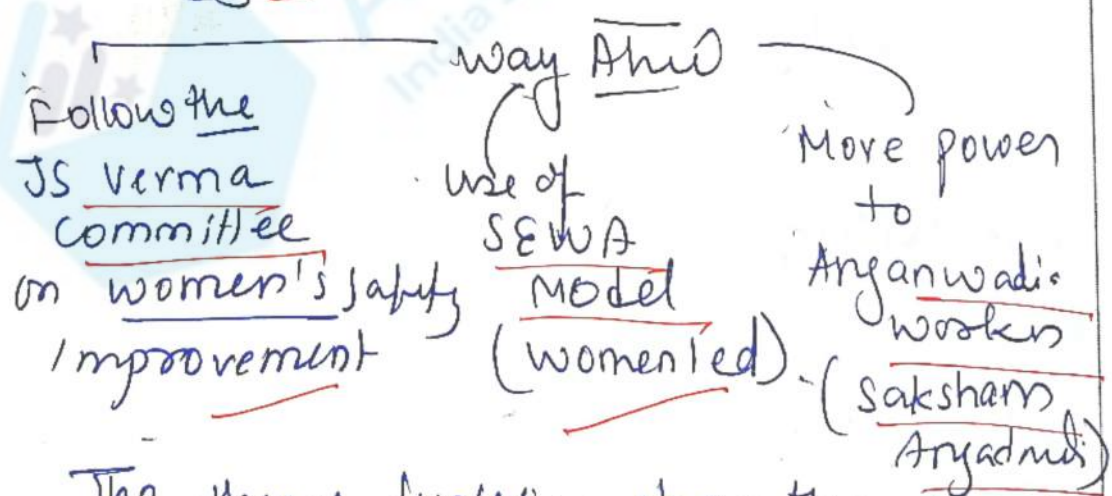 Way Ahd
Follow the
JS Verma
Committee
on women's safety
Improvement
Use of
SEWA
Model
(women led).
More power
to
Anganwadi
workers
(Saksham
The
India